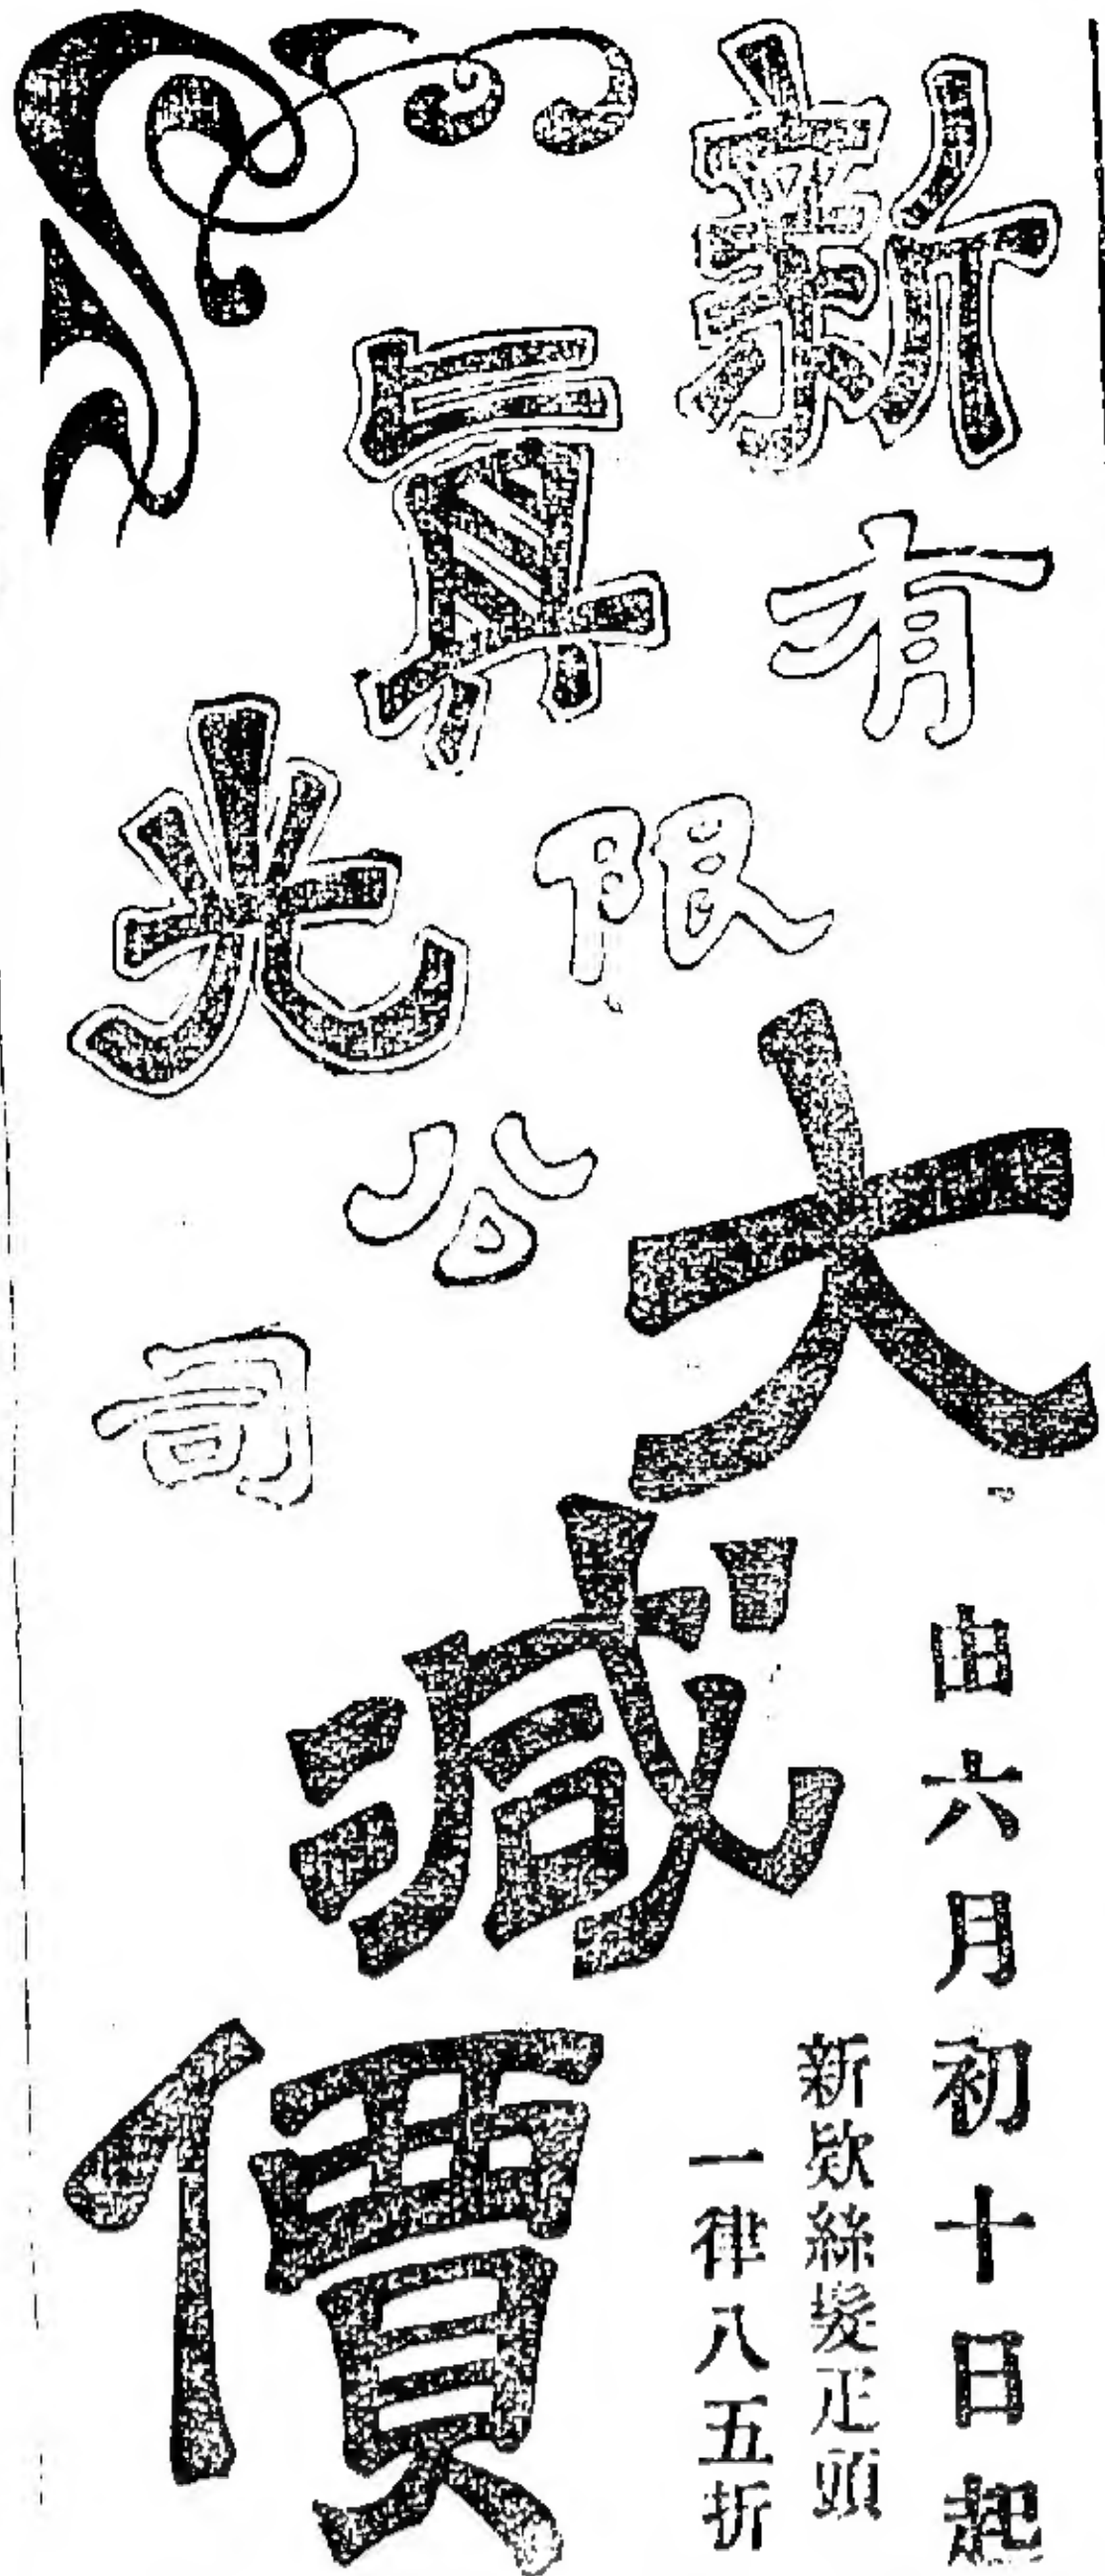 新真光
有限公司
大减價
由六月初十日起
新欵絲髮疋頭
一律八五折